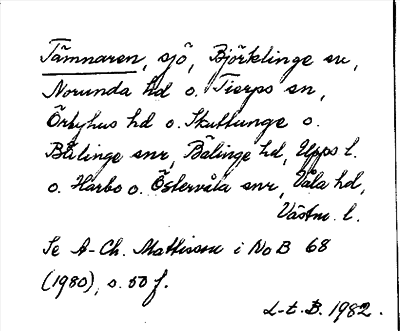 Tämnaren, sjö, Björklinge sn,
Norunda hd o. Tierps sn,
Örbyhus hd o. Skuttunge o.
Bälinge snr, Bälinge hd, Upps l.
o. Harbo o. Östervåla snr, Våla hd,
Västm. l.
Se A-Ch. Mattisson i NoB 68
(1980), s. 50 f.
L-E. B. 1982.